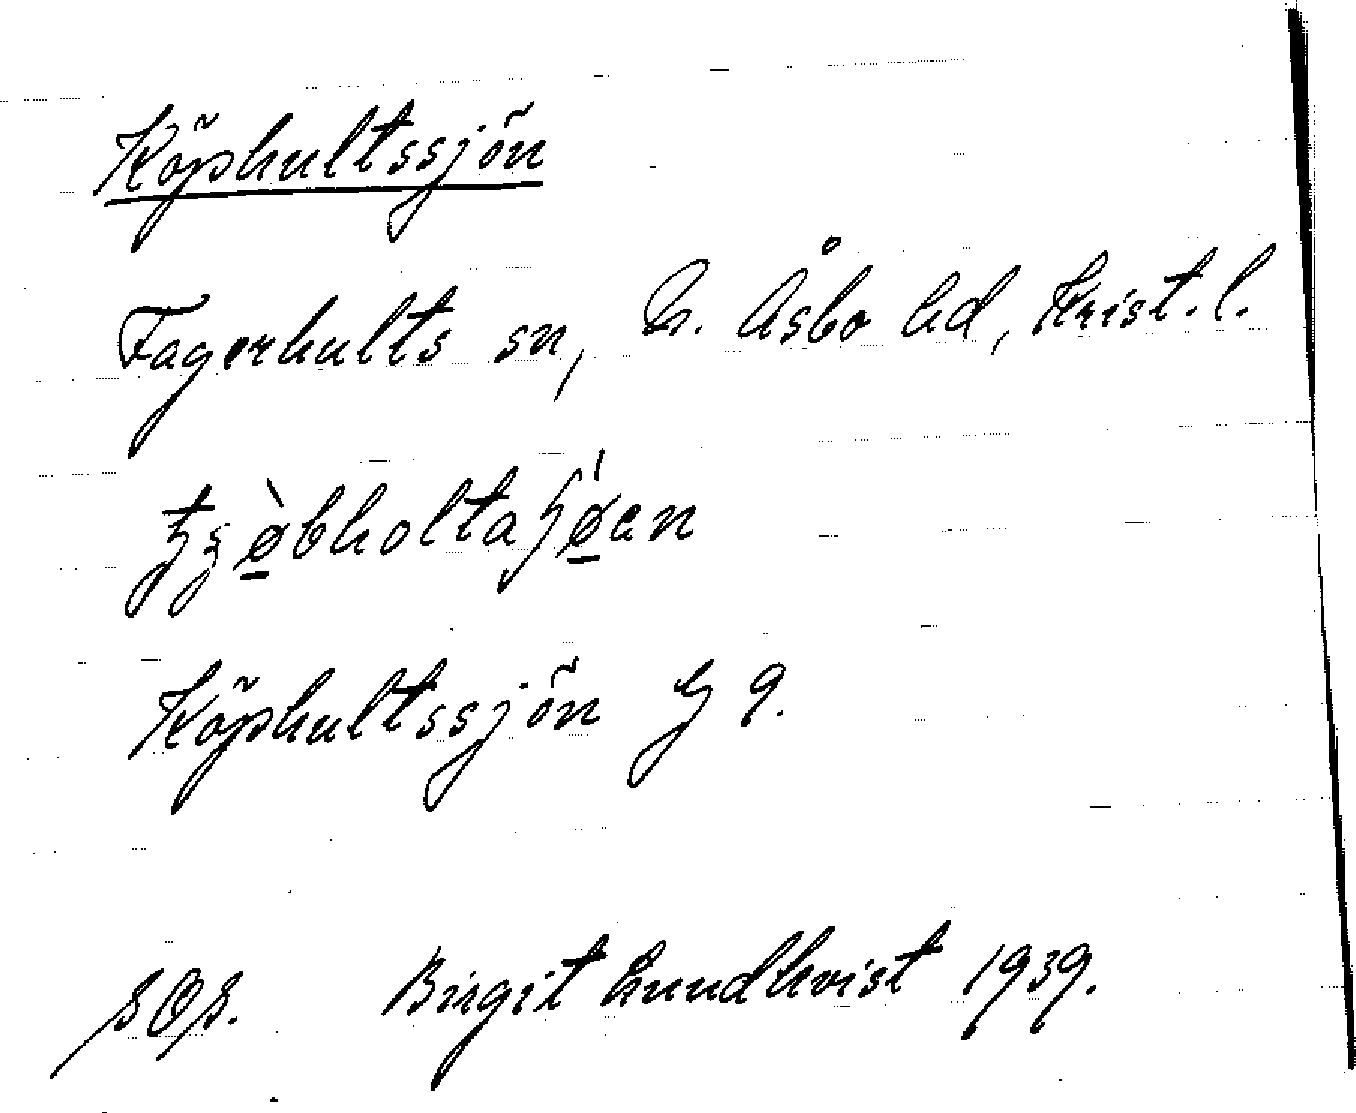 Köphultssjön
Fagerhults sn, N. Åsbo hd, Krist. l.
Köphultssjön G 9.
SOS. Birgit Lundkvist 1939.